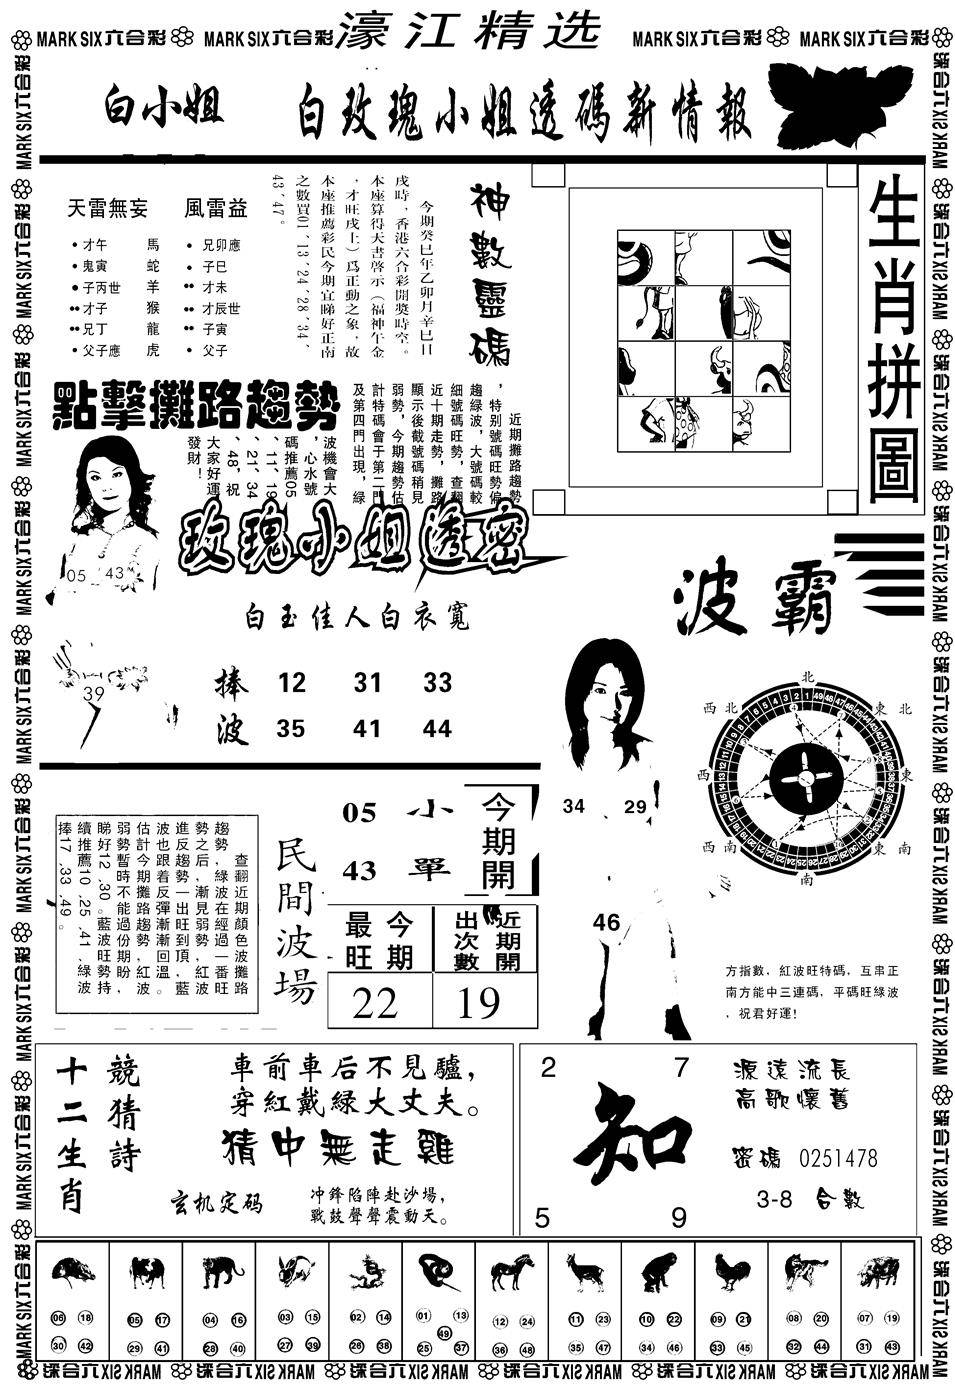 MARK SIX六合彩 MARK SIX六合彩 濠江精选 MARK SIX六合彩 MARK SIX六合彩
白小姐 白玫瑰小姐透碼新情報
天雷無妄 風雷益
才午 馬 兄卯應
鬼寅 蛇 子巳
子丙世 羊 才未
才子 猴 才辰世
兄丁 龍 子寅
父子應 虎 父子
神數靈碼
今期癸巳年乙卯月辛巳日
戌時，香港六合彩開獎時空。
本座算得天書啓示（福神午金
，才旺戌土）爲正動之象，故
本座推薦彩民今期宜睇好正南
之數買01、13、24、28、34、
43、47。
生肖拼圖
點擊攤路趨勢
近期攤路趨勢
，特别號碼旺勢偏
趨緑波，大號碼較
細號碼旺勢，查翻
近十期走勢，攤路
顯示後截號碼稍見
弱勢，今期趨勢估
計特碼會于第二門
及第四門出現，緑
波機會大
，心水號
碼推薦05
、11、19
、21、34
、48，祝
大家好運
發財！
05 43
39
玫瑰小姐透密
白玉佳人白衣寬
捧 12 31 33
波 35 41 44
波霸
34 29
46
北
西北 東北
西 東
西南 東南
南
方指數，紅波旺特碼，互串正
南方能中三連碼，平碼旺緑波
，祝君好運！
查翻近期顏色波攤路
趨勢，緑波在經過一番旺
勢之后，漸見弱勢，紅波
進反趨勢一出旺到頂，藍
波也跟着反彈漸漸回溫。
估計今期攤路趨勢紅波
弱勢暫時不能過份期盼，
睇好12、30。藍波旺勢持
續推薦10、25、41、緑波
捧17、33、49。
民間波場
05 小
43 單
今期開
今期最旺
近期開出次數
22 19
十二生肖
競猜詩
車前車后不見驢，
穿紅戴緑大丈夫。
猜中無走雞
玄机定码
冲鋒陷陣赴沙場，
戰鼓聲聲震動天。
2 7
知
5 9
源遠流長
高歌懷舊
密碼 0251478
3-8 合數
06 18 05 17 04 16 03 15 02 14 01 13 12 24 11 23 10 22 09 21 08 20 07 19
49
30 42 29 41 28 40 27 39 26 38 25 37 36 48 35 47 34 46 33 45 32 44 31 43
MARK SIX六合彩 MARK SIX六合彩 MARK SIX六合彩 MARK SIX六合彩 MARK SIX六合彩 MARK SIX六合彩